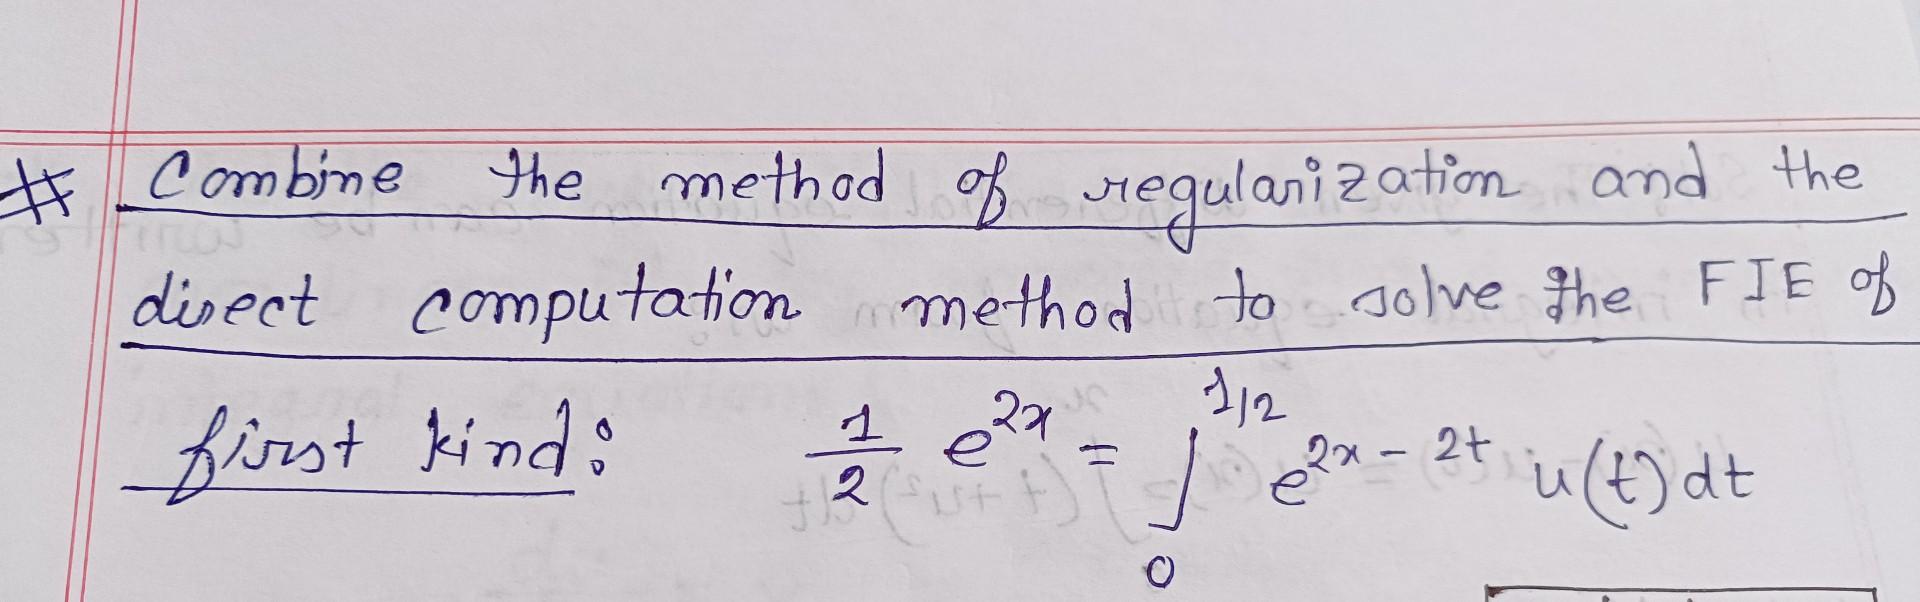 # Combine the method of regularization and the
direct computation method to solve the FIE of
first kind: 1/2 e^{2x} = ∫_0^{1/2} e^{2x-2t} u(t) dt